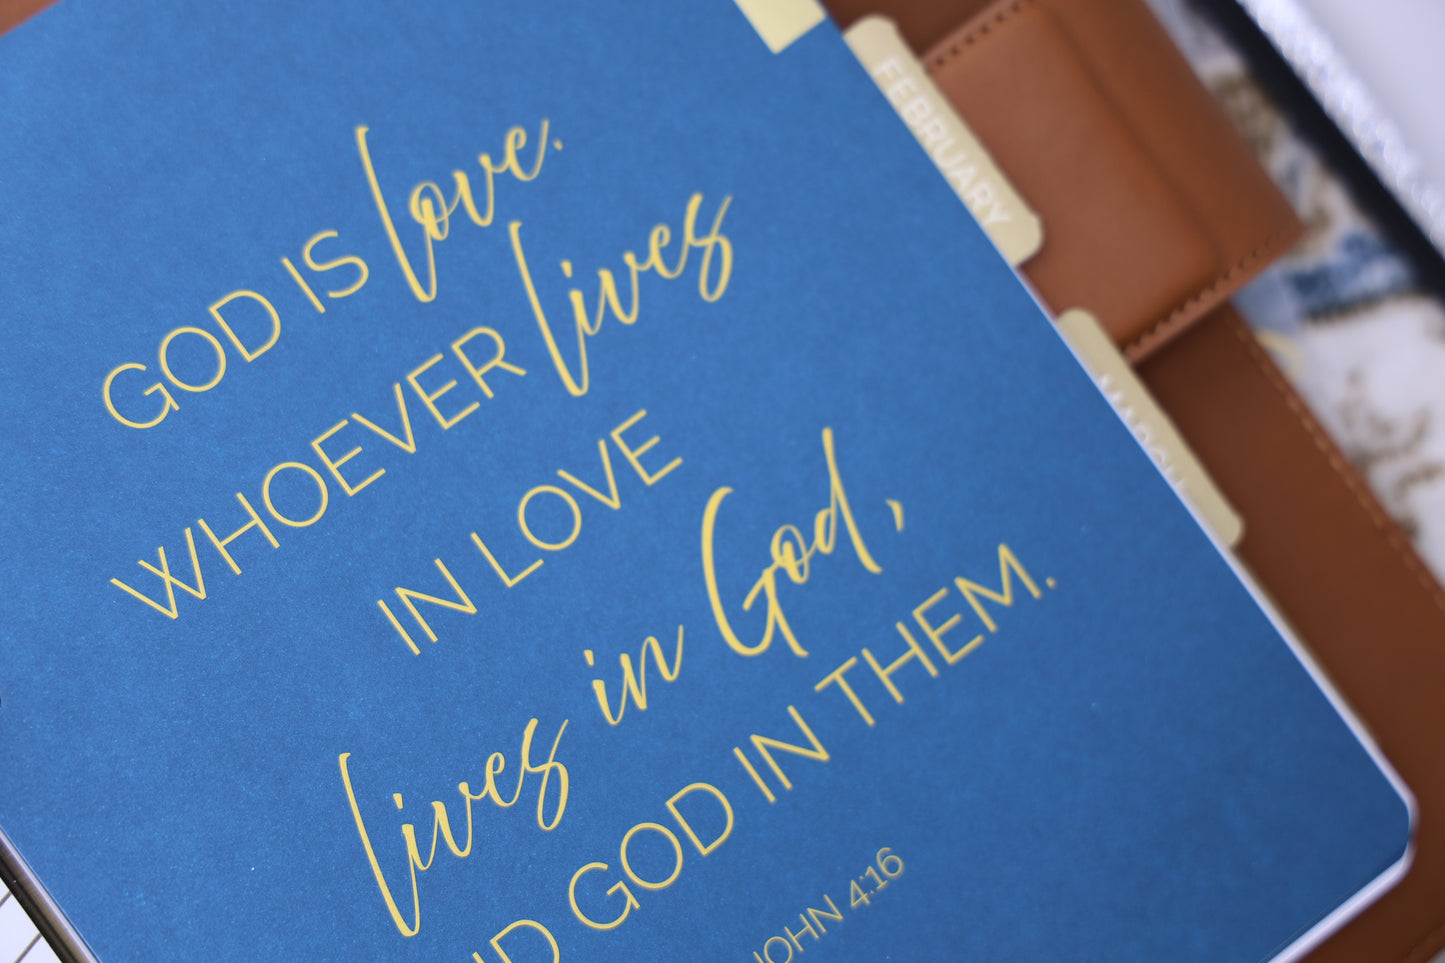 GOD IS love.
WHOEVER lives
IN LOVE
lives in God,
ND GOD IN THEM.
JOHN 4:16
FEBRUARY
MARCH